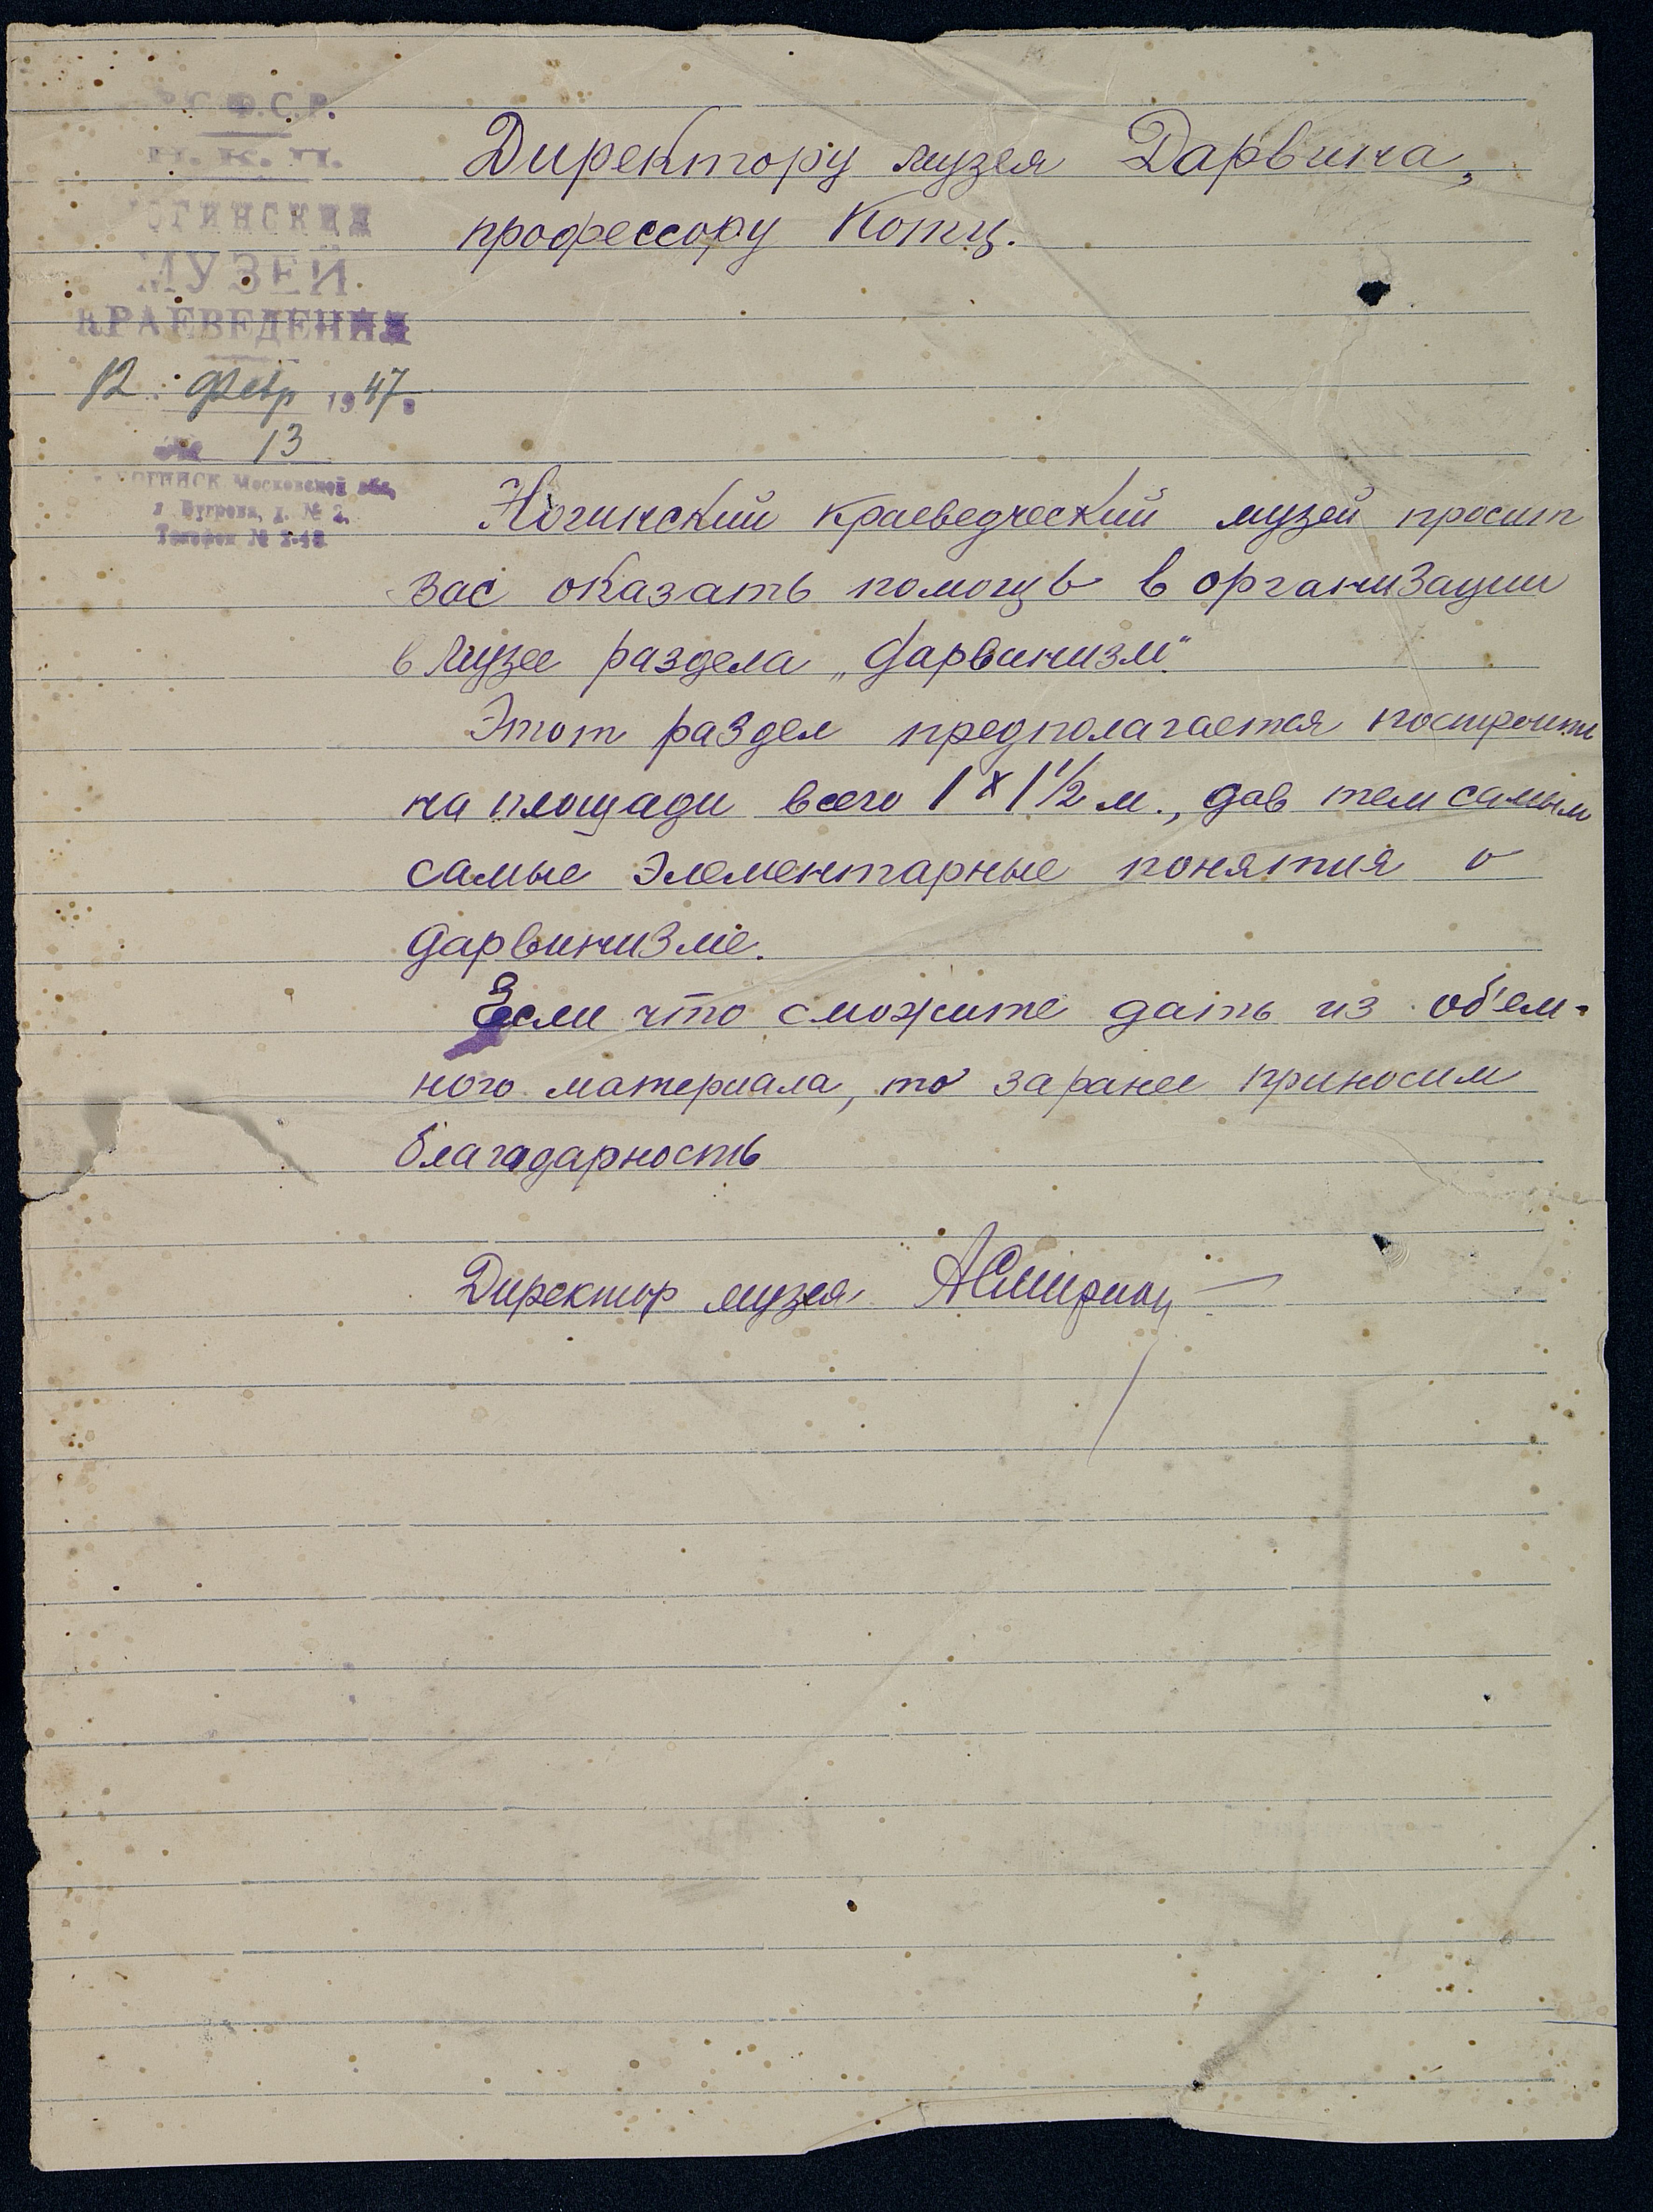 Р.С.Ф.С.Р.
Н.К.П.
НОГИНСКИЙ
МУЗЕЙ
КРАЕВЕДЕНИЯ
12. Февр 1947.
№ 13
НОГИНСК Московской обл,
д. № 2.
Телефон №
Директору музея Дарвина,
профессору Котц.
Ногинский краеведческий музей просит
Вас оказать помощь в организации
в музее раздела „дарвинизм“.
Этот раздел предполагается построить
на площади всего 1 х 1 1/2 м., дав тем самым
самые элементарные понятия о
дарвинизме.
Если что сможите дать из об'ем-
ного материала, то заранее приносим
благодарность
Директор музея